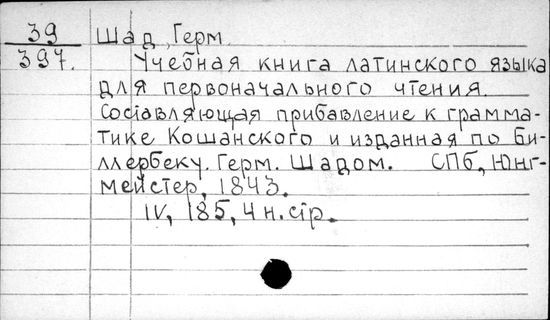 39 Шад, Герм.
397. Учебная книга латинского языка
для первоначального чтения.
Составляющая прибавление к грамма-
тике Кошанского и изданная по Би-
ллербеку. Герм. Шадом. СПб., Юнг-
мейстер, 1843.
IV, 185, 4 н. стр.